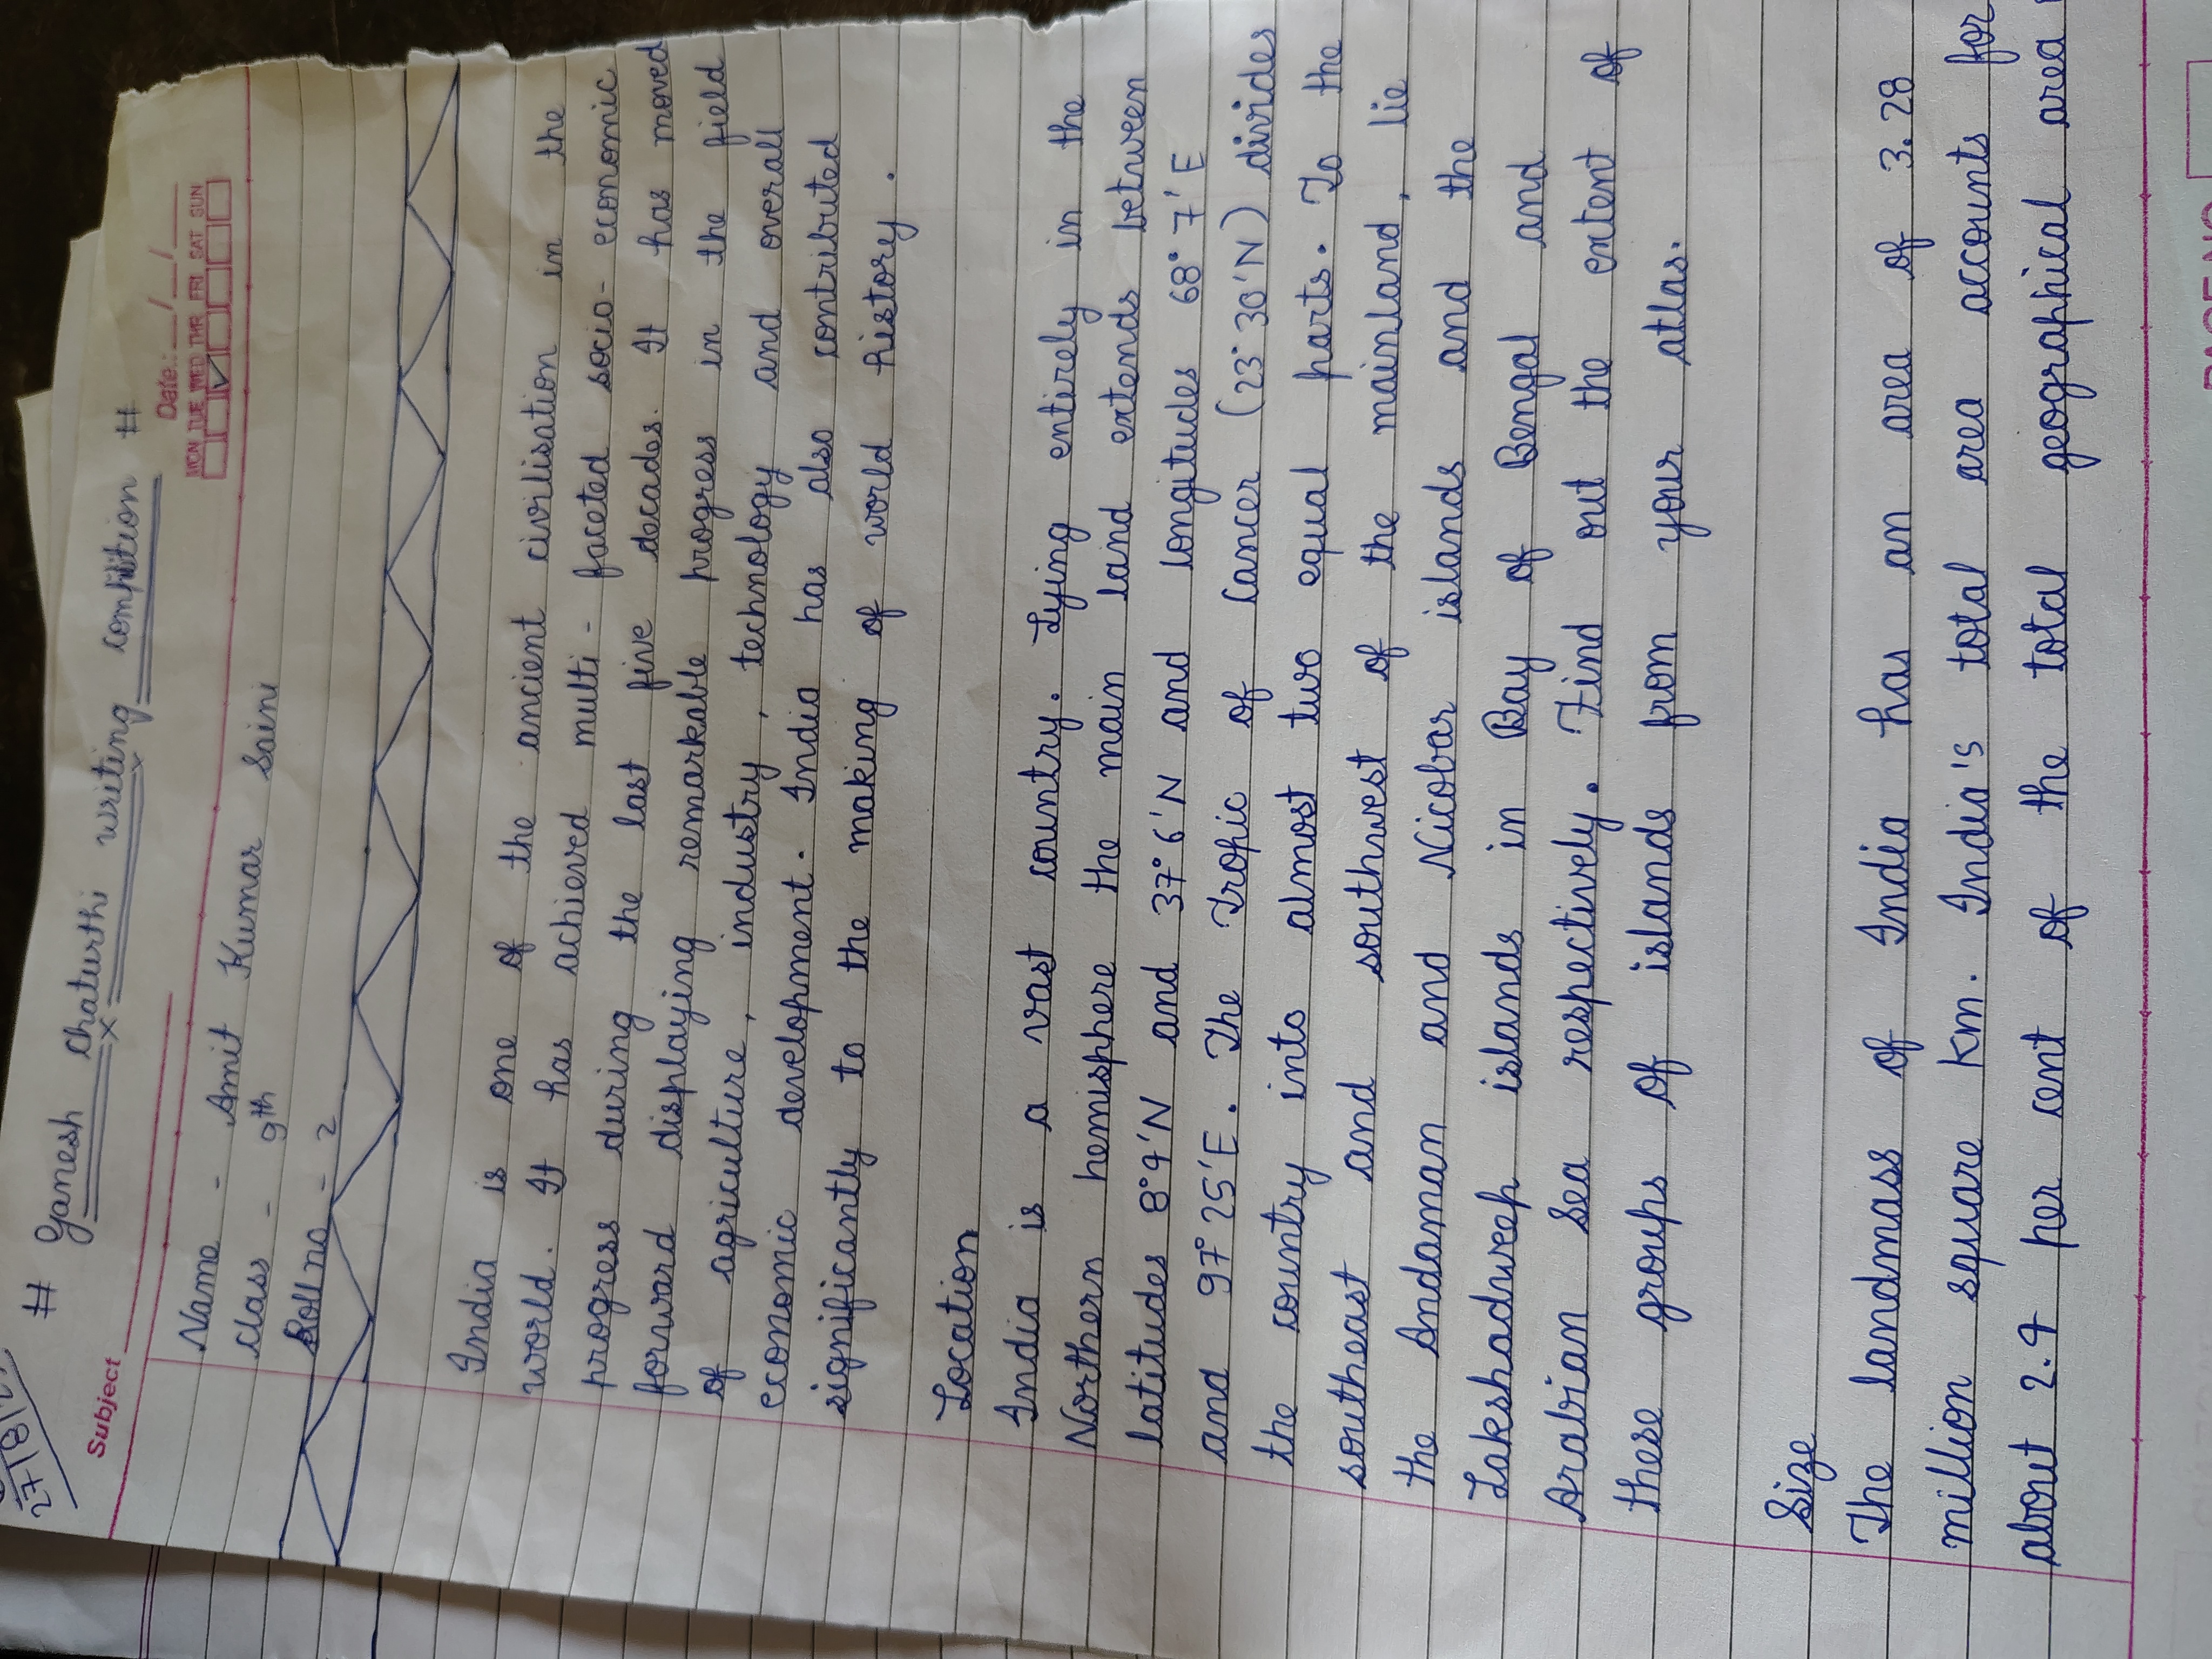 27/8/2
# Ganesh Chaturthi writing compitition #
Subject
Date:
MON TUE WED THR FRI SAT SUN
Name - Amit Kumar Saini
Class - 9th
Roll no - 2
India is one of the ancient civilisation in the
world. It has achieved multi-faceted socio-economic
progress during the last five decades. It has moved
forward displaying remarkable progress in the field
of agriculture, industry, technology and overall
economic development. India has also contributed
significantly to the making of world history.
Location
India is a vast country. Lying entirely in the
Northern hemisphere the main land extends between
latitudes 8°4'N and 37°6'N and longitudes 68°7'E
and 97°25'E. The Tropic of Cancer (23°30'N) divides
the country into almost two equal parts. To the
southeast and southwest of the mainland, lie
the Andaman and Nicobar islands and the
Lakshadweep islands in Bay of Bengal and
Arabian Sea respectively. Find out the extent of
these groups of islands from your atlas.
Size
The landmass of India has an area of 3.28
million square km. India's total area accounts for
about 2.4 per cent of the total geographical area